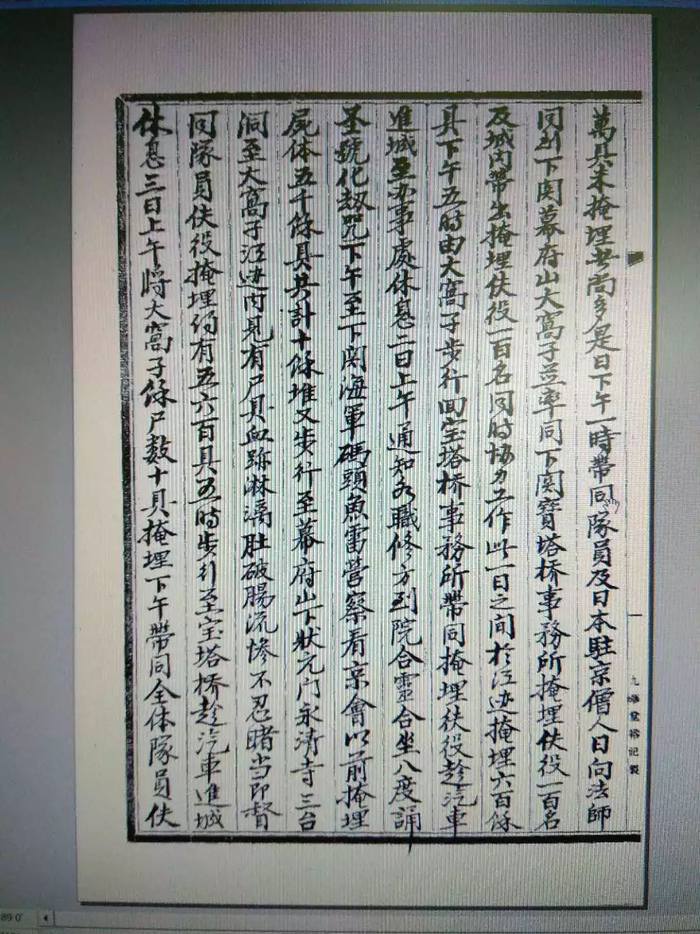 萬具未掩埋者尚多是日下午一時帶同隊員及日本駐京僧人日向法師
同到下関幕府山大窩子並率同下関寶塔桥事務所掩埋伕役一百名
及城内帶出掩埋伕役一百名同时协力工作此一日之间於江边掩埋六百餘
具下午五时由大窩子步行回宝塔桥事務所帶同掩埋伕役趁汽車
進城至办事處休息二日上午通知各職修方到院合靈合坐八度誦
圣號化諮咒下午至下関海軍碼頭魚雷营察看京會以前掩埋
屍体五千餘具共計十餘堆又步行至幕府山下狀元门永清寺三台
洞至大窩子江边内見有尸具血跡淋漓肚破腸流惨不忍睹当即督
同隊員伕役掩埋約有五六百具五时步行至宝塔桥趁汽車進城
休息三日上午將大窩子餘尸数十具掩埋下午帶同全体隊員伕
九華堂裕记製
89 0'